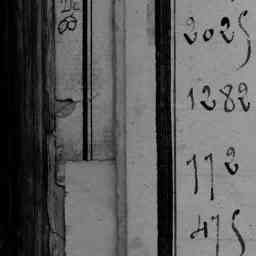 2025
1282
112
475